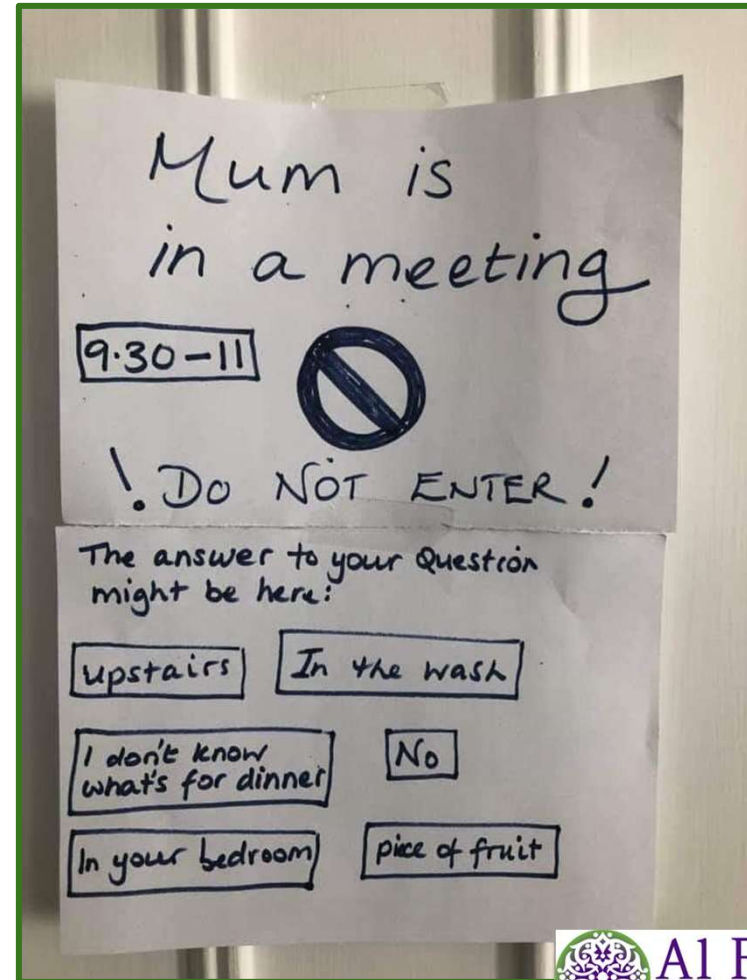 Mum is
in a meeting
9.30-11
! DO NOT ENTER!
The answer to your Question
might be here:
upstairs
In the wash
I don't know
what's for dinner
No
In your bedroom
piece of fruit
Al